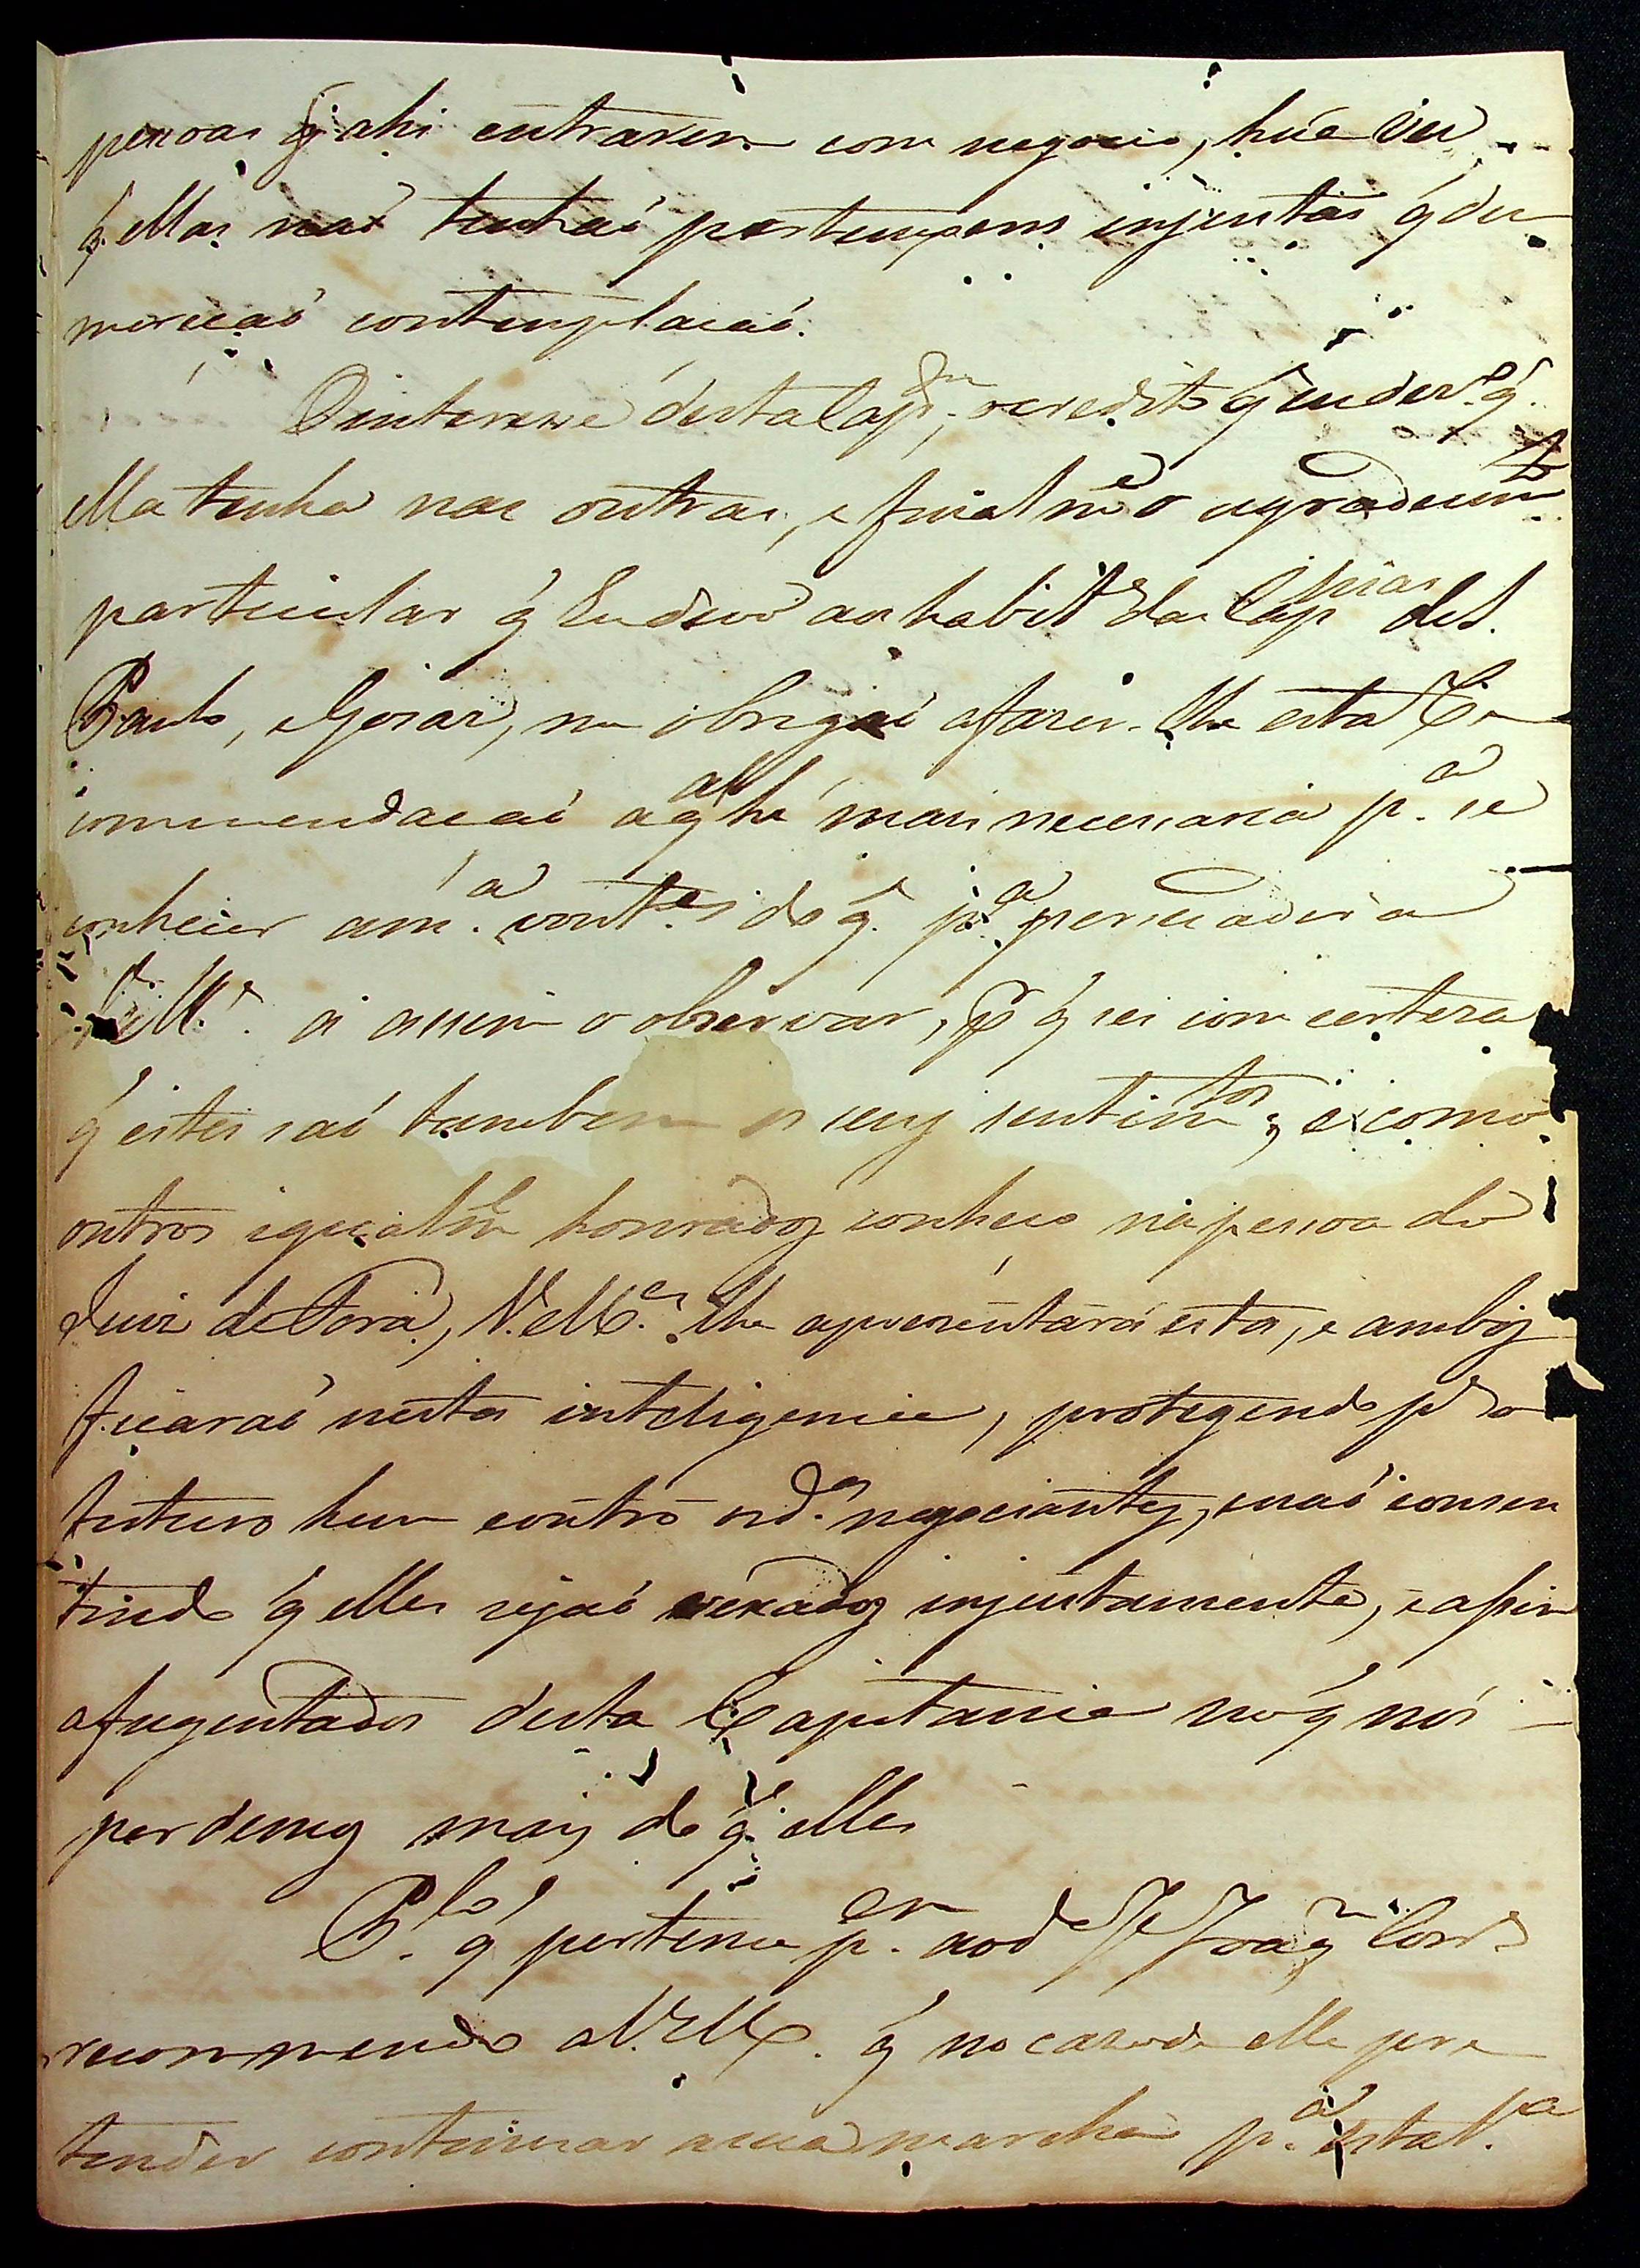 pessoas q̃ ahi entrarem com negocio, húa vez
q̃ ellas naõ tenhaõ pertençoens injustas q̃ des
mereçaõ contemplacaõ.
O interesse desta Cap.nia, o credito q̃ eu dez.o q̃
ella tenha nas outras, e finalm.e o agradecim.to
particular q̃ Eu devo aos habit.es das Cap.nias de S.
Paulo, e Goiaz, me obrigaõ a fazer-lhe esta Re
commendacaõ a q̃ al he mais necessaria p.a se
conhecer a m.a vont.e, do q̃ p.a persuadir a
V. M.ce a assim o observar, p̃ q̃ sei com certeza
q̃ estes saõ tambem os seus sentim.tos; e como
outros igualm.e honrados conheco na pessoa do
Juiz de Fora, V. M.ce lhe aprezentará esta, e ambos
ficaraõ nesta inteligencia, protegendo p.a o
futuro hum e outro os d.os negociantes, e naõ consen
tindo q̃ elles sejaõ vexados injustamente, e assim
afugentados desta Capitania no q̃ nós
perdemos mais do q̃ elles
P.lo q̃ pertence p.em ao d.o J.e Joaq.m Corr.a
recommendo a V. M.ce q̃ no cazo de elle pre
tender continuar a sua marcha p.a esta V.a